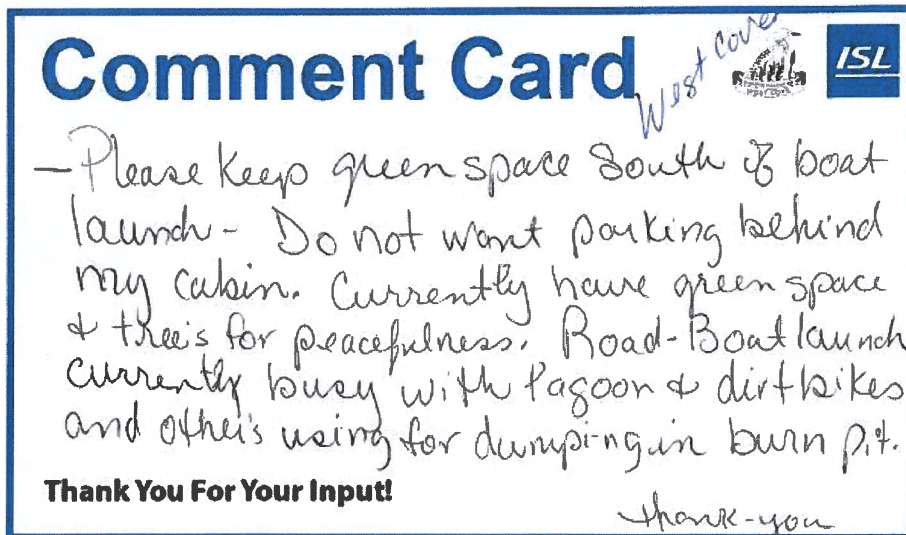 Comment Card
West Cove
ISL
- Please Keep green space South of boat
launch - Do not want parking behind
my cabin. Currently have green space
& tree's for peacefulness. Road-Boat launch
currently busy with lagoon & dirt bikes
and other's using for dumping in burn pit.
Thank You For Your Input!
thank-you